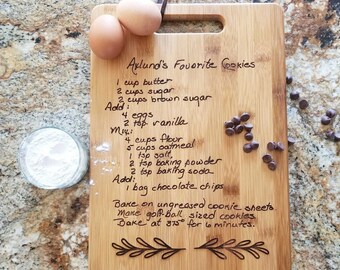 Axlund's Favorite Cookies
1 cup butter
2 cups sugar
2 cups brown sugar
Add:
4 eggs
2 tsp vanilla
Mix:
4 cups flour
5 cups oatmeal
1 tsp salt
2 tsp baking powder
2 tsp baking soda
Add:
1 bag chocolate chips
Bake on ungreased cookie sheets.
Make golf ball sized cookies.
Bake at 375° for 6 minutes.